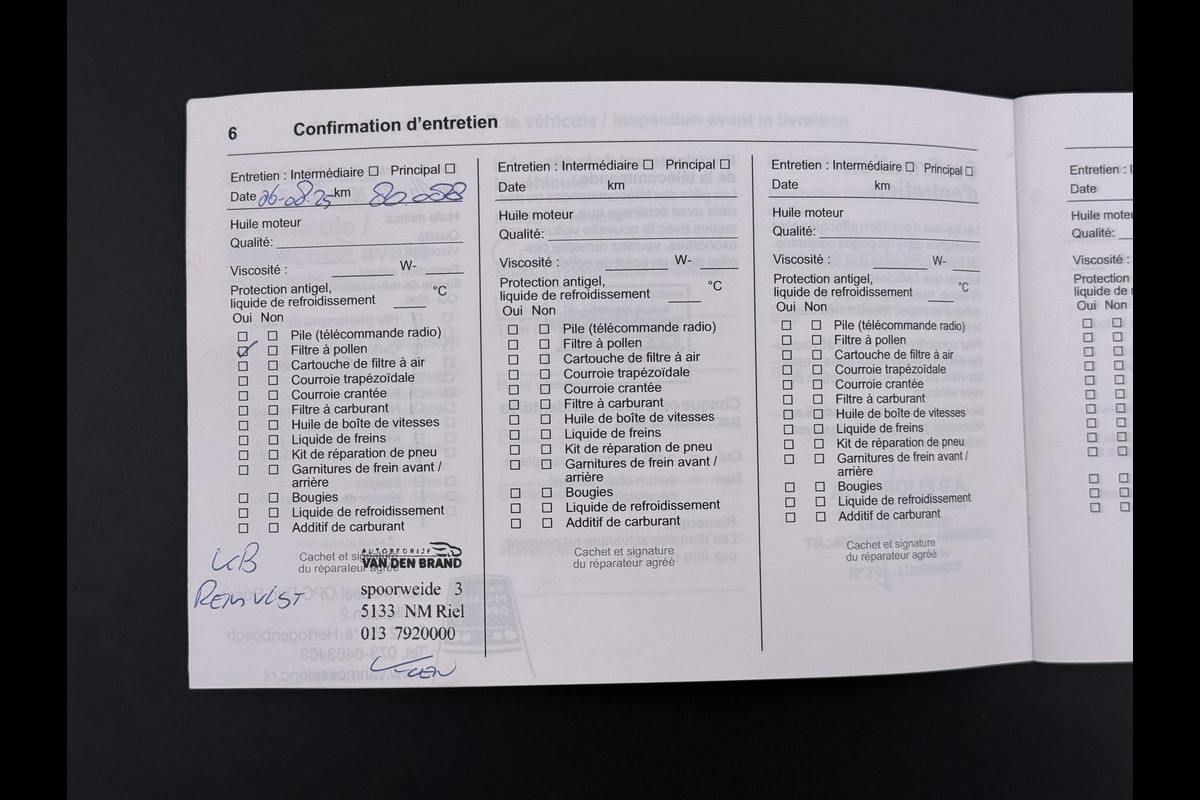 6 Confirmation d'entretien
Entretien : Intermédiaire ☐ Principal ☐
Date 26-08-25 km 80.088
Huile moteur
Qualité:
Viscosité : W-
Protection antigel,
liquide de refroidissement °C
Oui Non
Pile (télécommande radio)
Filtre à pollen
Cartouche de filtre à air
Courroie trapézoïdale
Courroie crantée
Filtre à carburant
Huile de boîte de vitesses
Liquide de freins
Kit de réparation de pneu
Garnitures de frein avant /
arrière
Bougies
Liquide de refroidissement
Additif de carburant
Cachet et signature
du réparateur agréé
AUTOBEDRIJF
VAN DEN BRAND
spoorweide 3
5133 NM Riel
013 7920000
REMVLST
Entretien : Intermédiaire ☐ Principal ☐
Date km
Huile moteur
Qualité:
Viscosité : W-
Protection antigel,
liquide de refroidissement °C
Oui Non
Pile (télécommande radio)
Filtre à pollen
Cartouche de filtre à air
Courroie trapézoïdale
Courroie crantée
Filtre à carburant
Huile de boîte de vitesses
Liquide de freins
Kit de réparation de pneu
Garnitures de frein avant /
arrière
Bougies
Liquide de refroidissement
Additif de carburant
Cachet et signature
du réparateur agréé
Entretien : Intermédiaire ☐ Principal ☐
Date km
Huile moteur
Qualité:
Viscosité : W-
Protection antigel,
liquide de refroidissement °C
Oui Non
Pile (télécommande radio)
Filtre à pollen
Cartouche de filtre à air
Courroie trapézoïdale
Courroie crantée
Filtre à carburant
Huile de boîte de vitesses
Liquide de freins
Kit de réparation de pneu
Garnitures de frein avant /
arrière
Bougies
Liquide de refroidissement
Additif de carburant
Cachet et signature
du réparateur agréé
Entretien :
Date
Huile
Qualité:
Viscosité :
Protection
liquide de
Oui Non